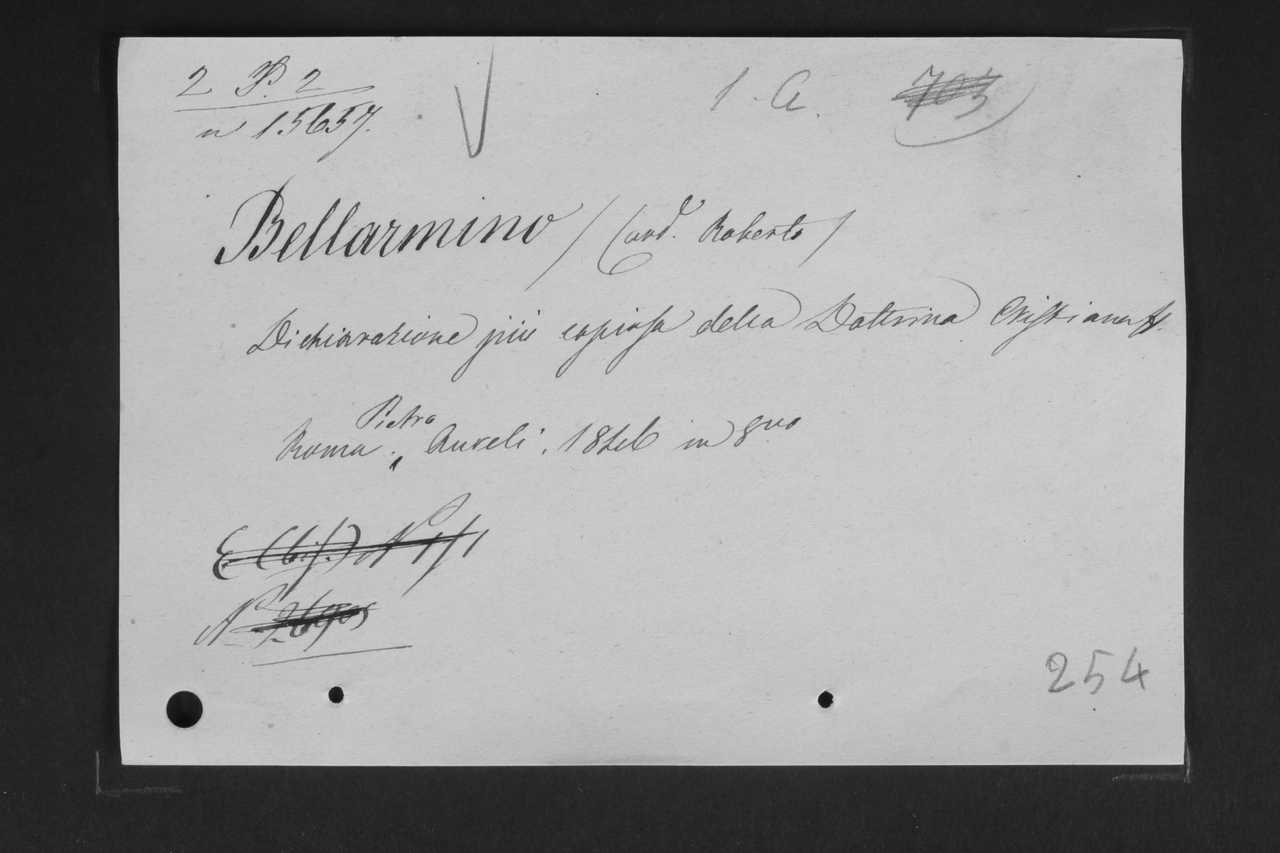 2 P. 2
n 15657.
1. A.
703
Bellarmino / Card. Roberto /
Dichiarazione più copiosa della Dottrina Cristiana
Roma, Pietro Aureli, 1846 in 8vo
E (bis.) N 1/1
N
254